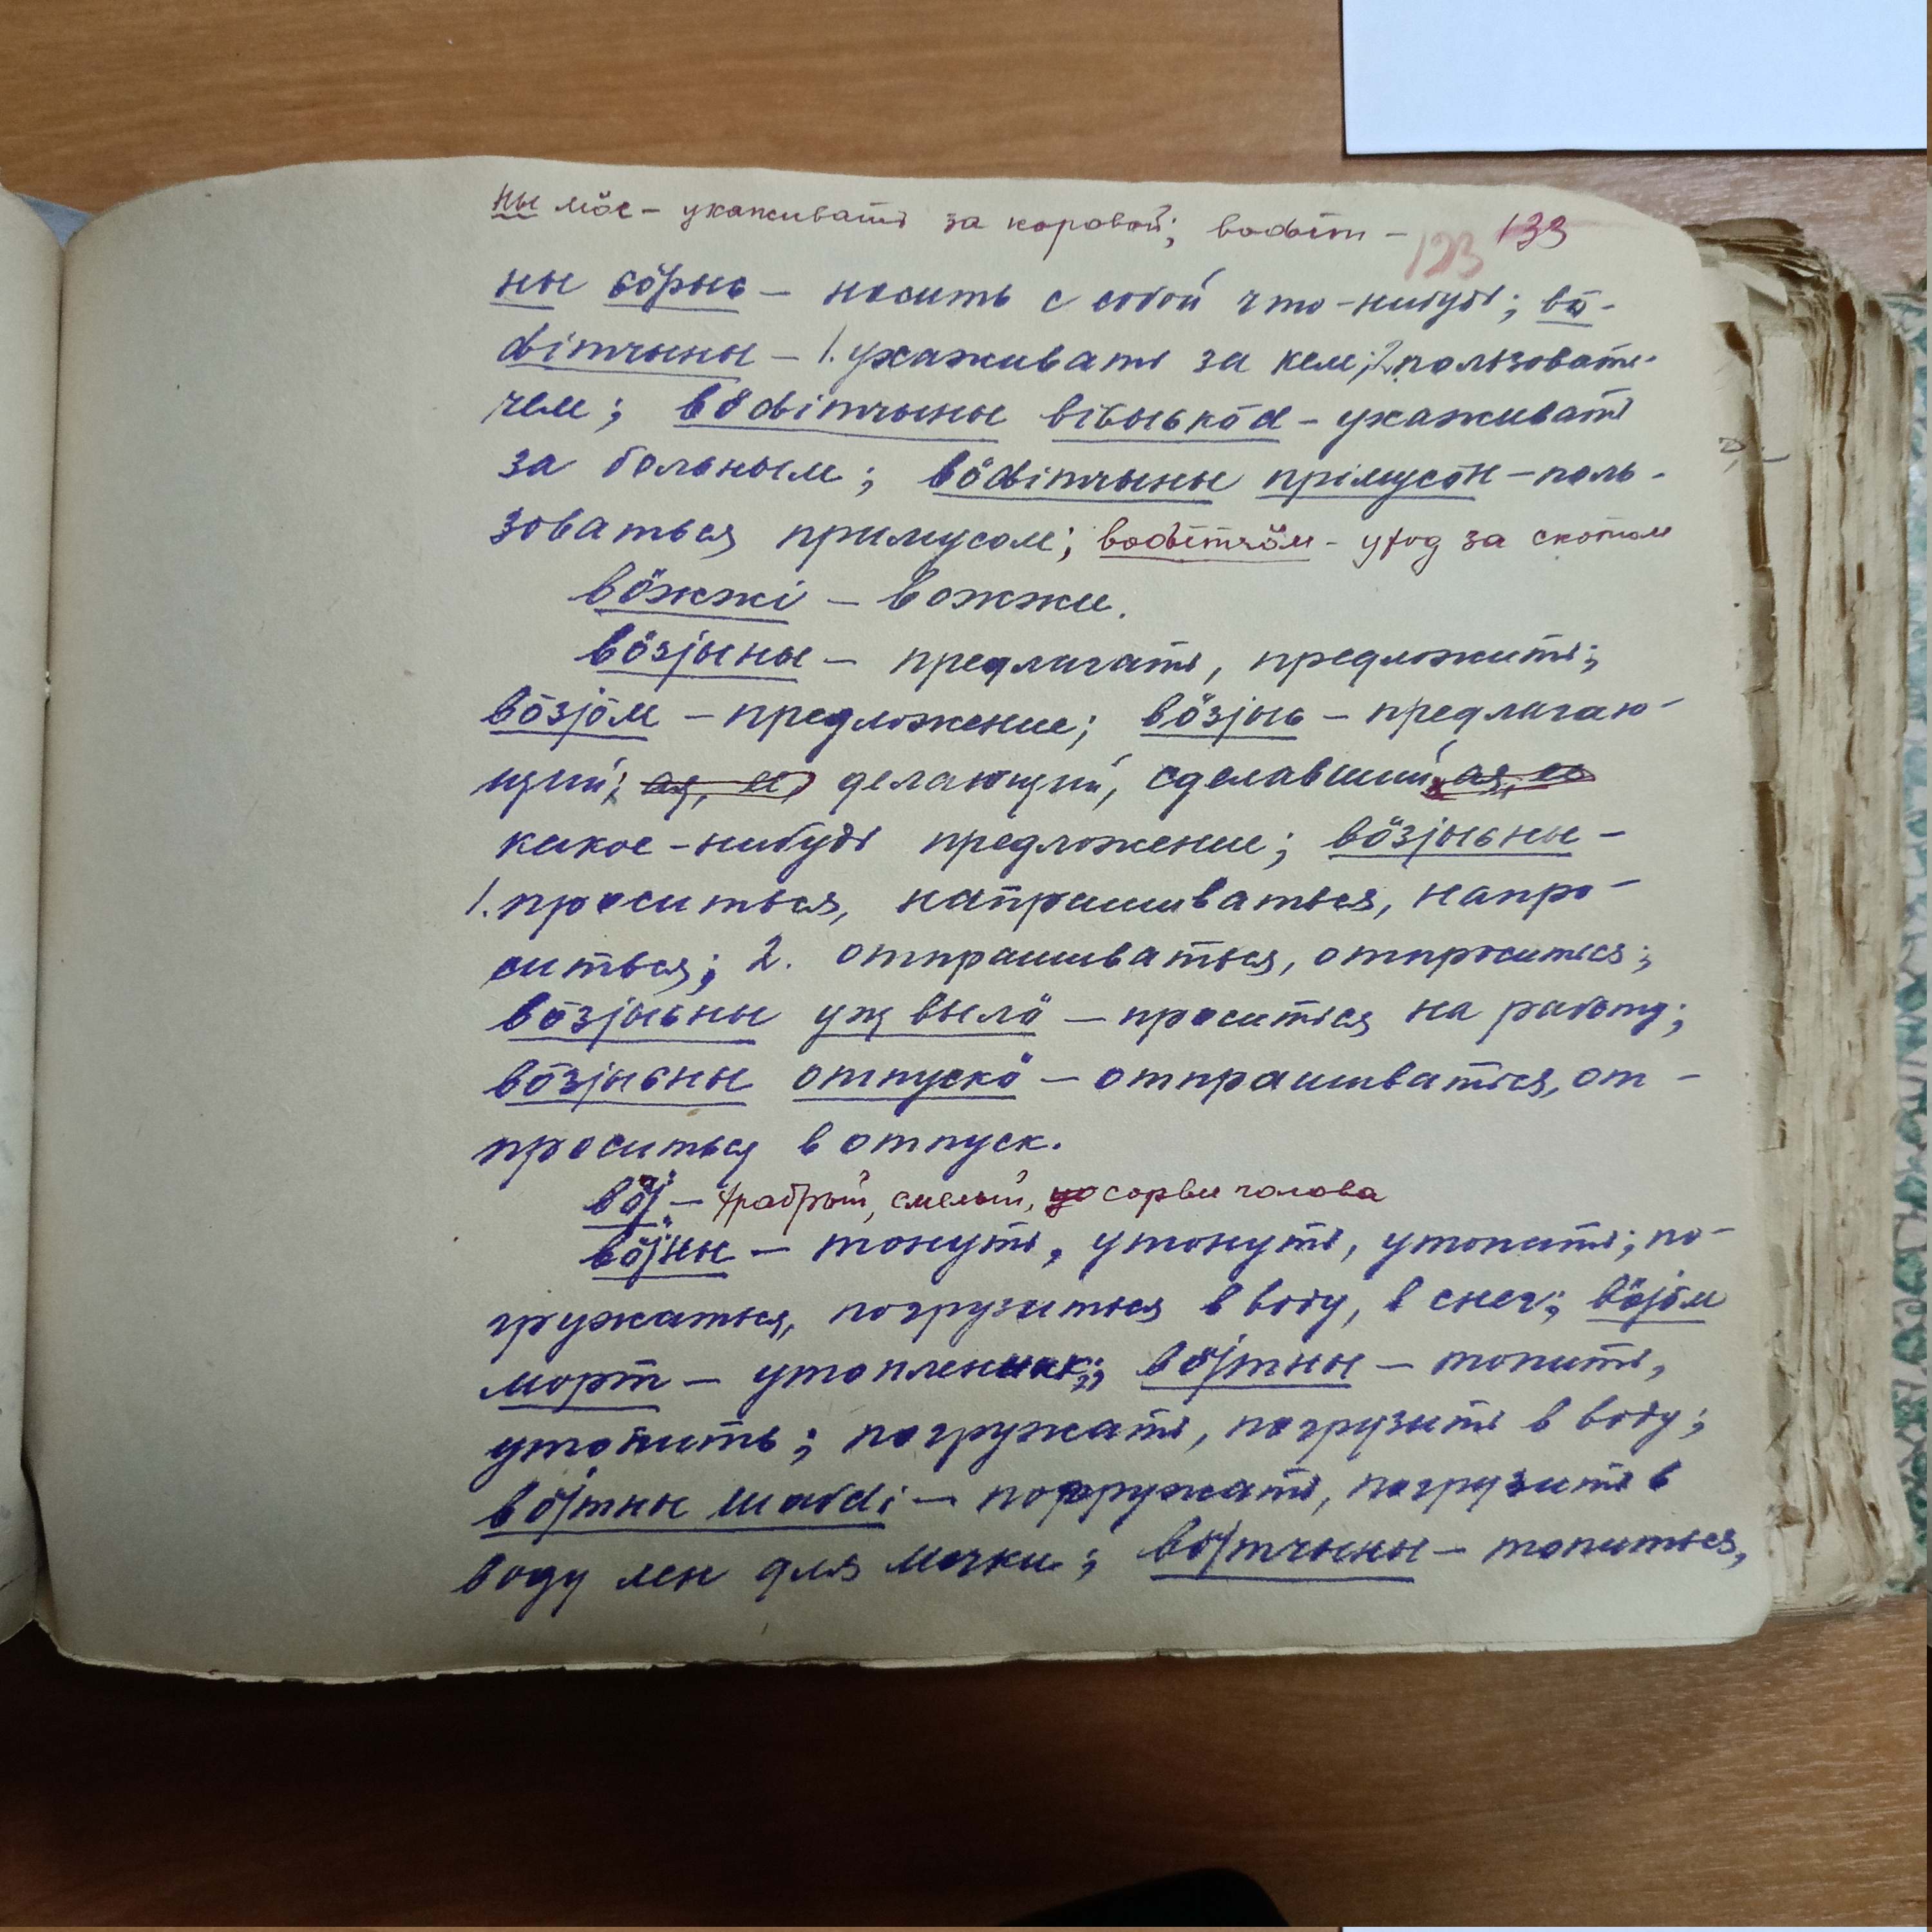 ны мӧс – ухаживать за коровой; водіт – 123 133
ны сӧрыс – носить с собой что-нибудь; вӧ-
дітчыны – 1. ухаживать за кем; 2. пользовать.
чем; вӧдітчыны вісыськӧд – ухаживать
за больным; вӧдітчыны прімусӧн – поль-
зоваться примусом; водітчӧм – уход за скотом
вӧжжі – вожжи.
вӧзјыны – предлагать, предложить;
вӧзјӧм – предложение; вӧзјыс – предлагаю-
щий; ая, ее, делающий, сделавший, ая, ее
какое-нибудь предложение; вӧзјысны –
1. проситься, напрашиваться, напро-
ситься; 2. отпрашиваться, отпроситься;
вӧзјысны уҗ вылӧ – проситься на работу;
вӧзјысны отпускӧ – отпрашиваться, от-
проситься в отпуск.
вӧј – храбрый, смелый, сорви голова
вӧјны – тонуть, утонуть, утопить; по-
гружаться, погрузиться в воду, в снег; вӧјӧм
морт – утопленник; вӧјтны – топить,
утопить; погружать, погрузить в воду;
вӧјтны шабді – погружать, погрузить в
воду лен для мочки; вӧјтчыны – топиться,